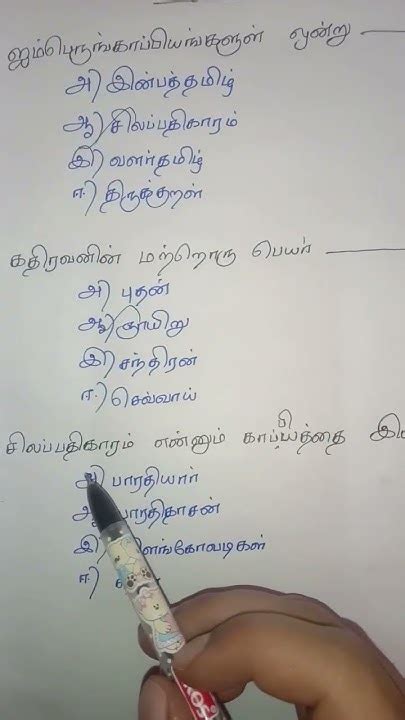 ஐம்பெருங்காப்பியங்களுள் ஒன்று
அ) இன்பத்தமிழ்
ஆ) சிலப்பதிகாரம்
இ) வளர்தமிழ்
ஈ) திருக்குறள்
கதிரவனின் மற்றொரு பெயர்
அ) புதன்
ஆ) ஞாயிறு
இ) சந்திரன்
ஈ) செவ்வாய்
சிலப்பதிகாரம் என்னும் காப்பியத்தை
அ) பாரதியார்
ஆ) பாரதிதாசன்
இ) இளங்கோவடிகள்
ஈ)